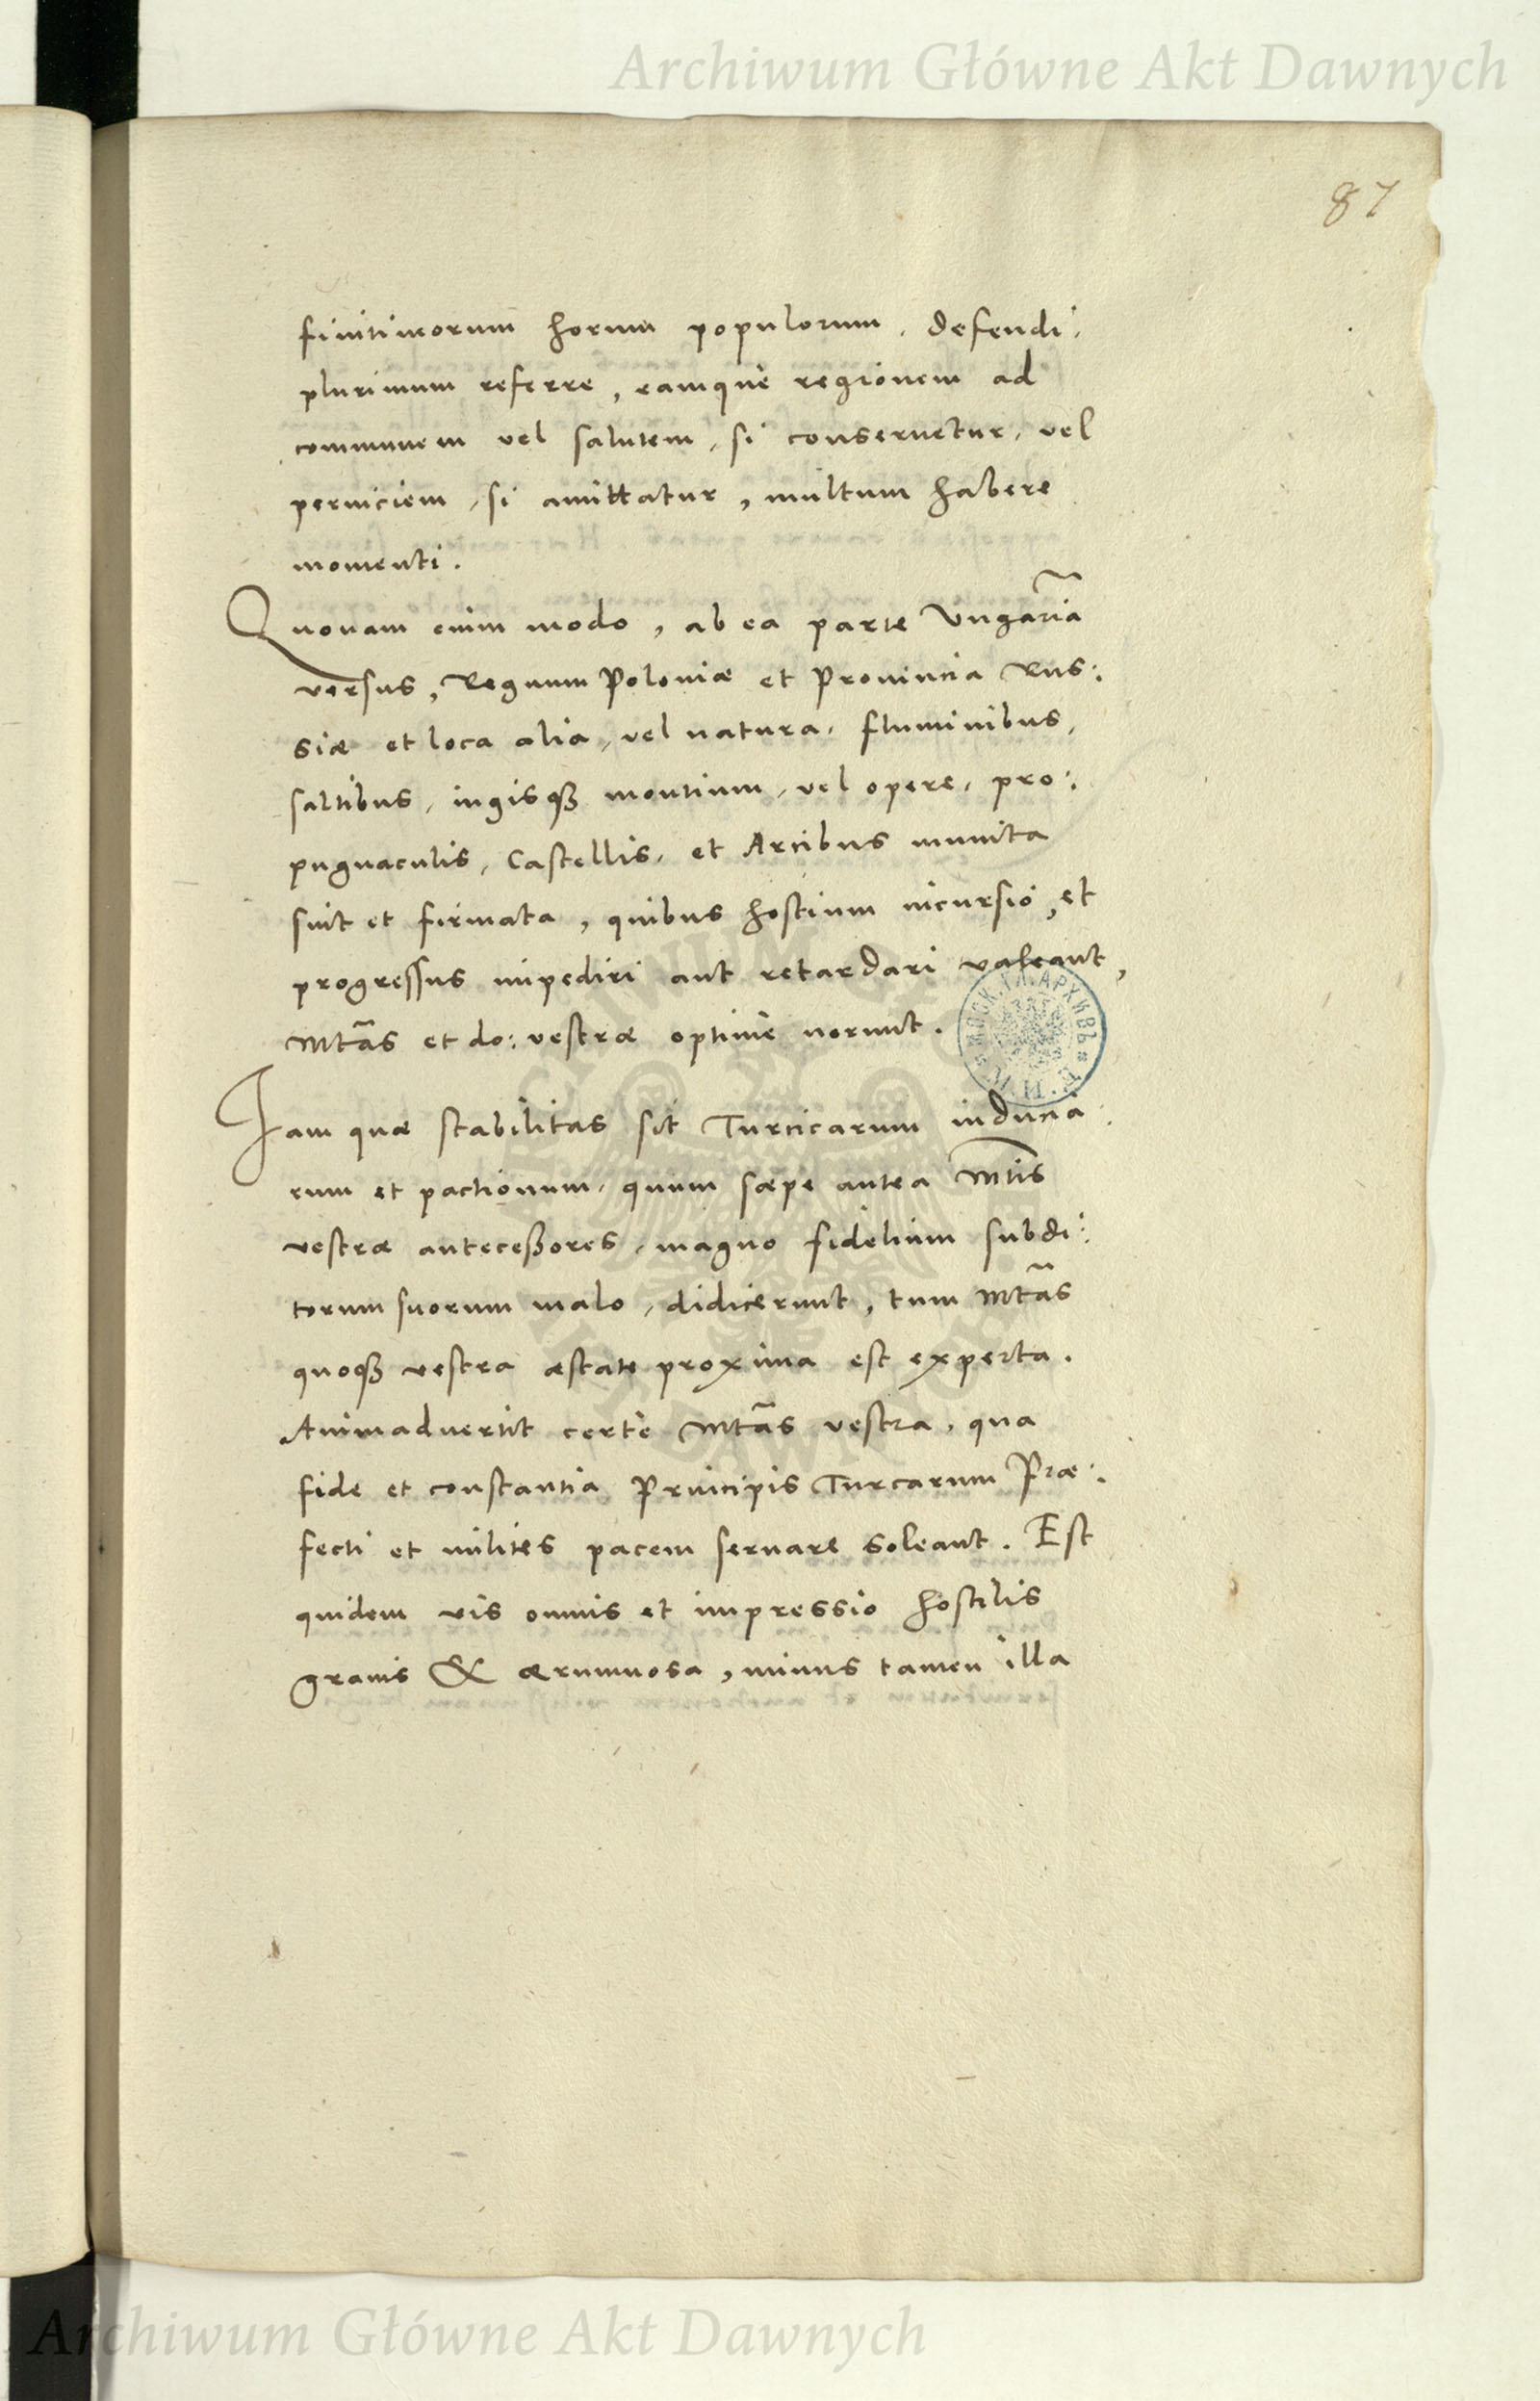 Archiwum Główne Akt Dawnych
87
finitimorum horum populorum, defendi,
plurimum referre, eamque regionem ad
communem vel salutem, si conseruetur, vel
perniciem, si amittatur, multum habere
momenti.
Quonam enim modo, ab ea parte Vngariã
versus, Regnum Poloniæ et Prouincia Rus:
siæ et loca alia, vel natura, fluminibus,
saltibus, iugisqȝ montium, vel opere, pro:
pugnaculis, Castellis, et Arcibus munita
sint et firmata, quibus hostium incursio, et
progressus impediri aut retardari valeant,
Mtãs et do: vestræ optime norunt.
Iam quæ stabilitas sit Turcicarum inducia:
rum et pactionum, quum sæpe antea Mtis
vestræ anteceßores, magno fidelium subdi:
torum suorum malo, didicerunt, tum Mtãs
quoqȝ vestra æstate proxima est experta.
Animaduertit certè Mtãs vestra, qua
fide et constantia Principis Turcarum Præ:
fecti et milites pacem seruare soleant. Est
quidem vis omnis et impressio hostilis
grauis & ærumnosa, minus tamen illa
Archiwum Główne Akt Dawnych